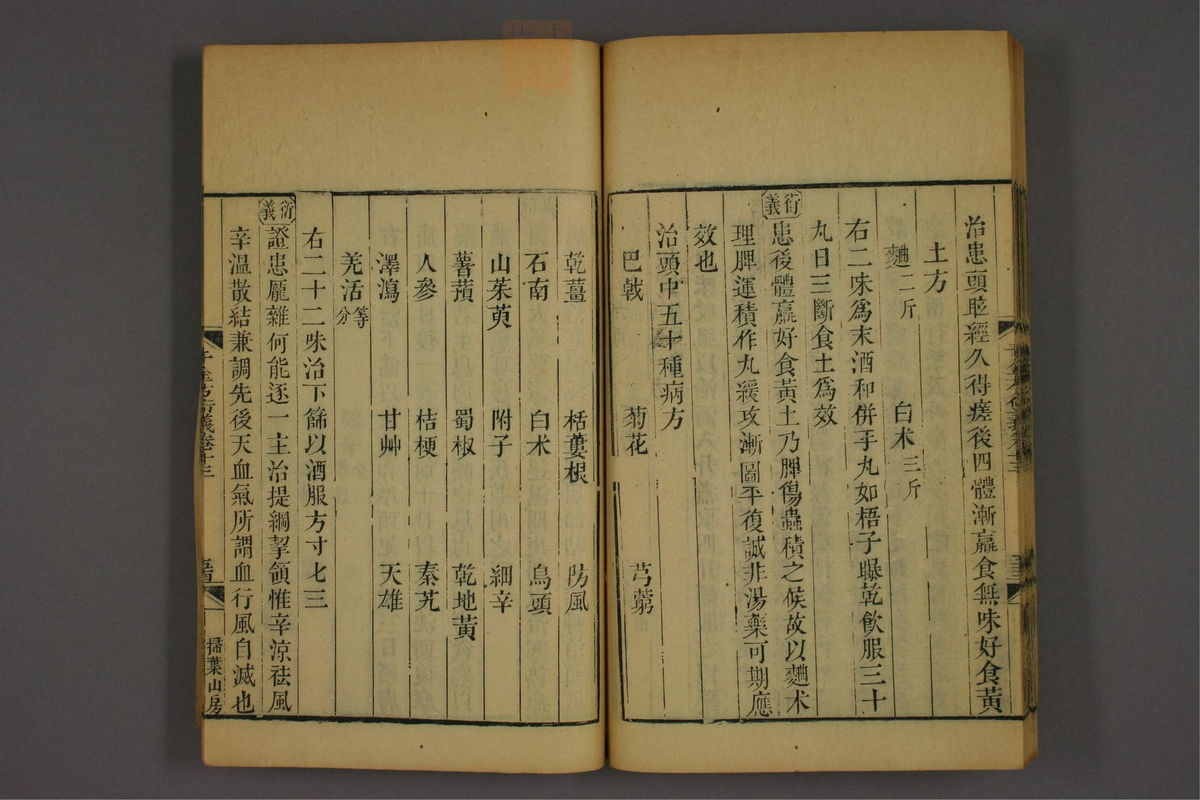 治患頭眩經久得瘥後四體漸羸食無味好食黃
土方
麯二斤 白朮三斤
右二味爲末酒和併手丸如梧子曝乾飲服三十
丸日三斷食土爲效
衍義
患後體羸好食黃土乃脾傷蟲積之候故以麯朮
理脾運積作丸緩攻漸圖平復誠非湯藥可期應
效也
治頭中五十種病方
巴戟 菊花 芎藭
乾薑 栝蔞根 防風
石南 白朮 烏頭
山茱萸 附子 細辛
薯蕷 蜀椒 乾地黃
人參 桔梗 秦艽
澤瀉 甘艸 天雄
羌活等分
右二十二味治下篩以酒服方寸匕三
衍義
證患龐雜何能逐一主治提綱挈領惟辛涼祛風
辛溫散結兼調先後天血氣所謂血行風自滅也
千金方衍義卷十三
掃葉山房